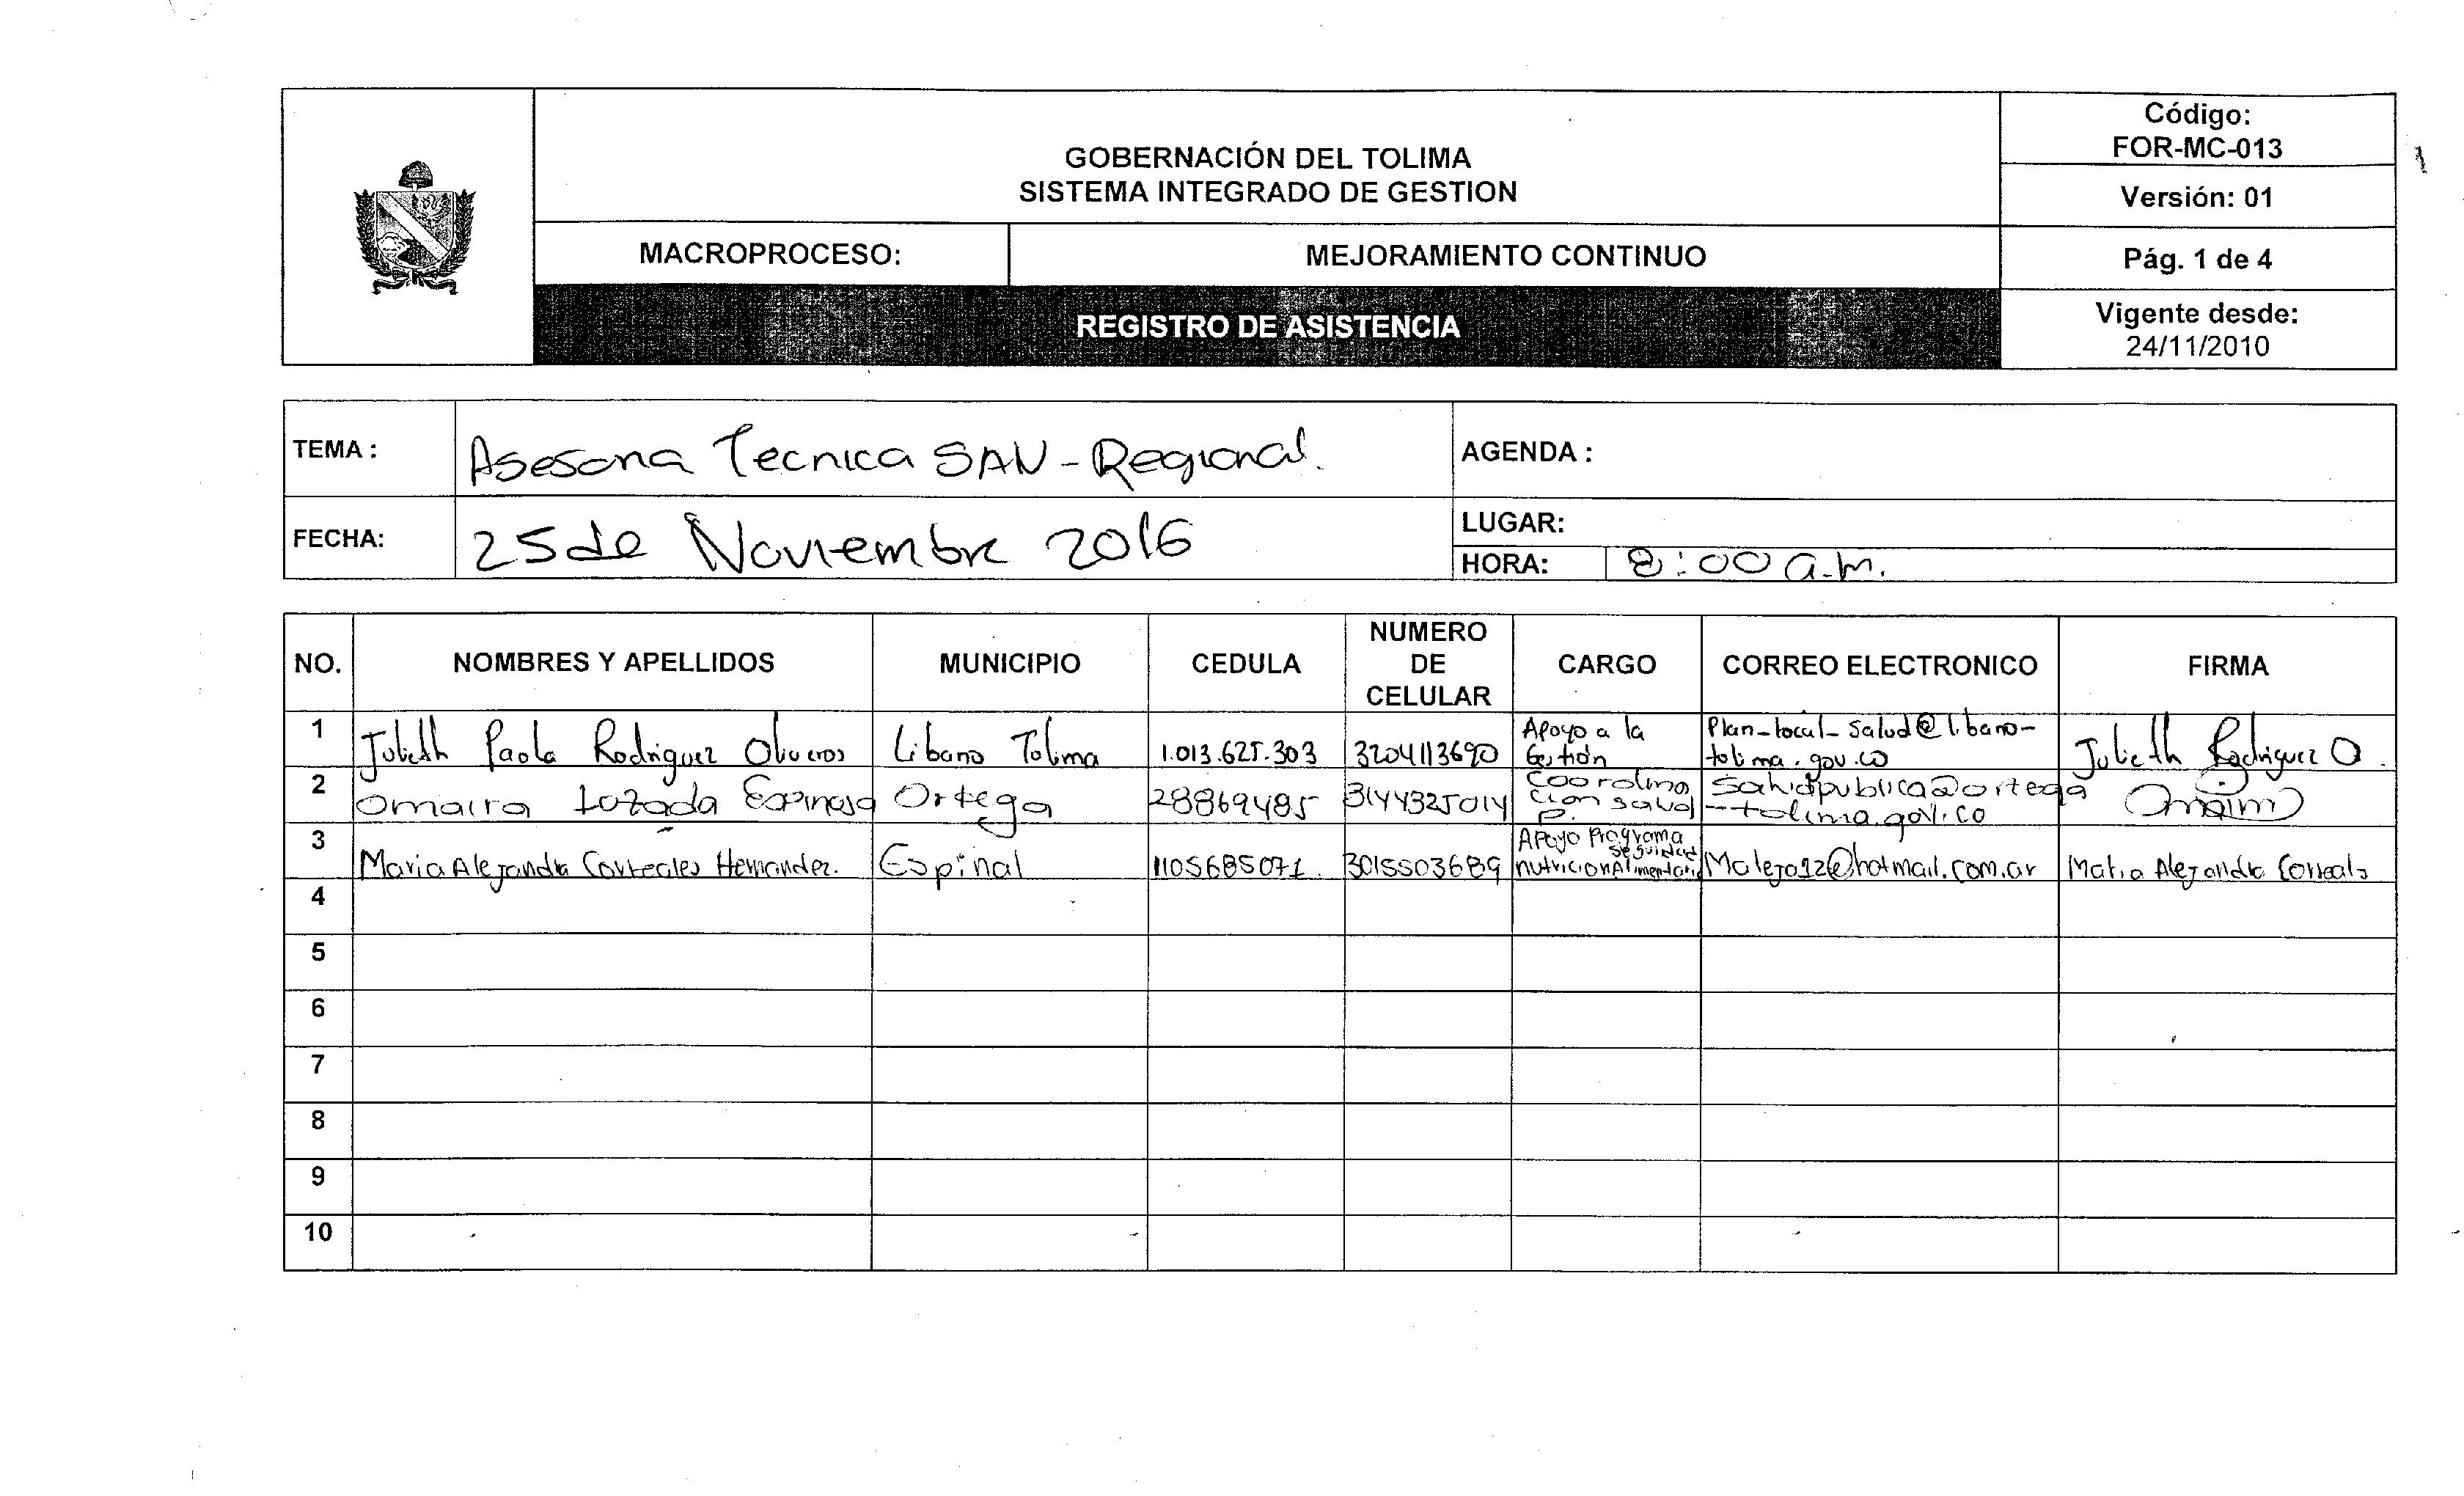 Código:
FOR-MC-013
GOBERNACIÓN DEL TOLIMA
SISTEMA INTEGRADO DE GESTION
Versión: 01
MACROPROCESO: MEJORAMIENTO CONTINUO Pág. 1 de 4
REGISTRO DE ASISTENCIA
Vigente desde:
24/11/2010
TEMA : Asesoria Tecnica SAN - Regional. AGENDA :
FECHA: 25 de Noviembre 2016
LUGAR:
HORA: 8:00 a.m.
NO. NOMBRES Y APELLIDOS MUNICIPIO CEDULA NUMERO DE CELULAR CARGO CORREO ELECTRONICO FIRMA
1 Julieth Paola Rodriguez Oliveros Libano Tolima 1.013.625.303 3204113690 Apoyo a la Gestión Plan-local-salud@libano-tolima.gov.co Julieth Rodriguez O.
2 Omaira Lozada Espinosa Ortega 28869485 3144325014 Coordinacion salud P. Saludpublica@ortega-tolima.gov.co Omaira
3 Maria Alejandra Correales Hernandez. Espinal 1105685071. 3015503689 Apoyo Programa seguridad nutricional Alimentaria Maleja12@hotmail.com.ar Maria Alejandra Correals
4
5
6
7
8
9
10